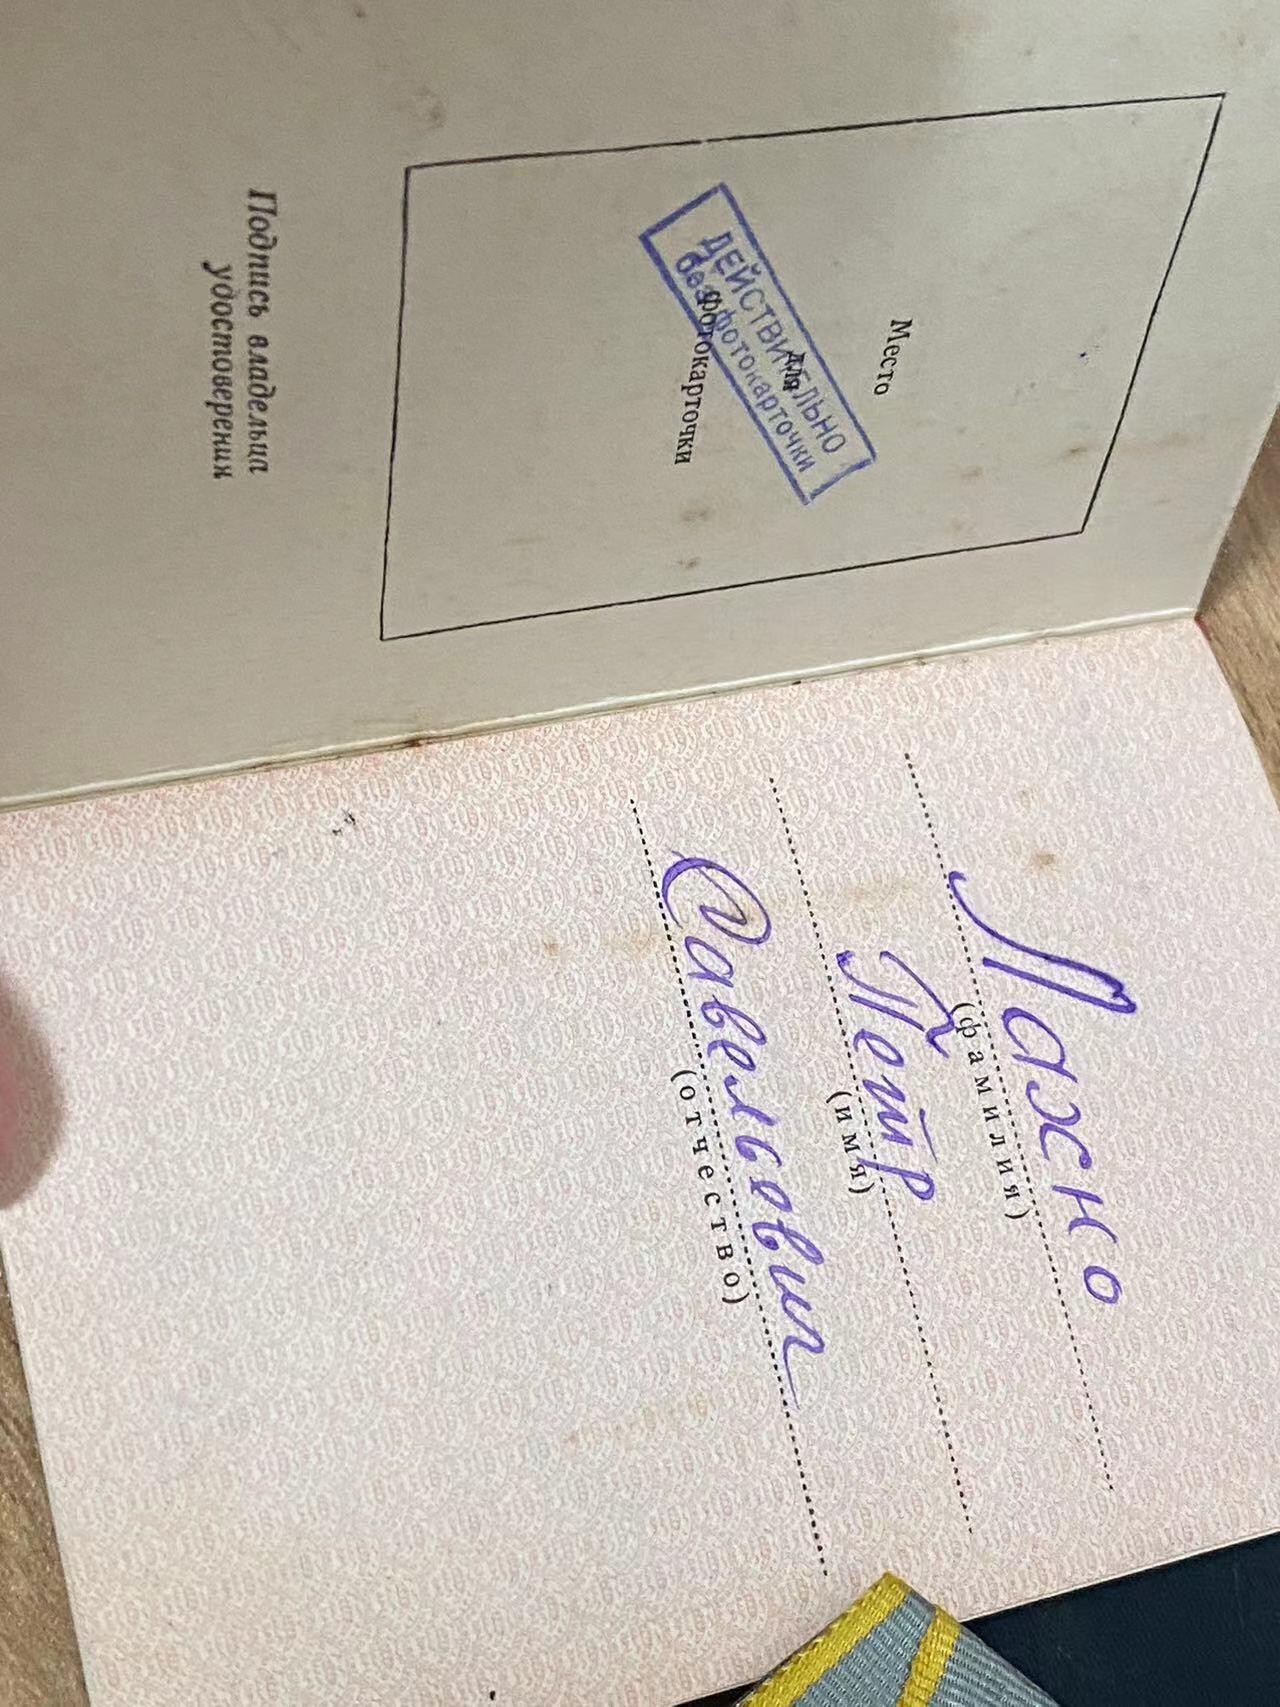 Место
для
фотокарточки
ДЕЙСТВИТЕЛЬНО
без фотокарточки
Подпись владельца
удостоверения
Лахно
(фамилия)
Петр
(имя)
Савельевич
(отчество)